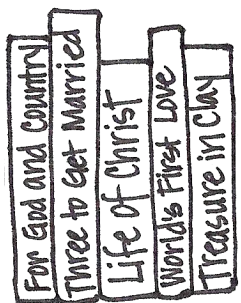 For God and Country
Three to Get Married
Life of Christ
World's First Love
Treasure in Clay